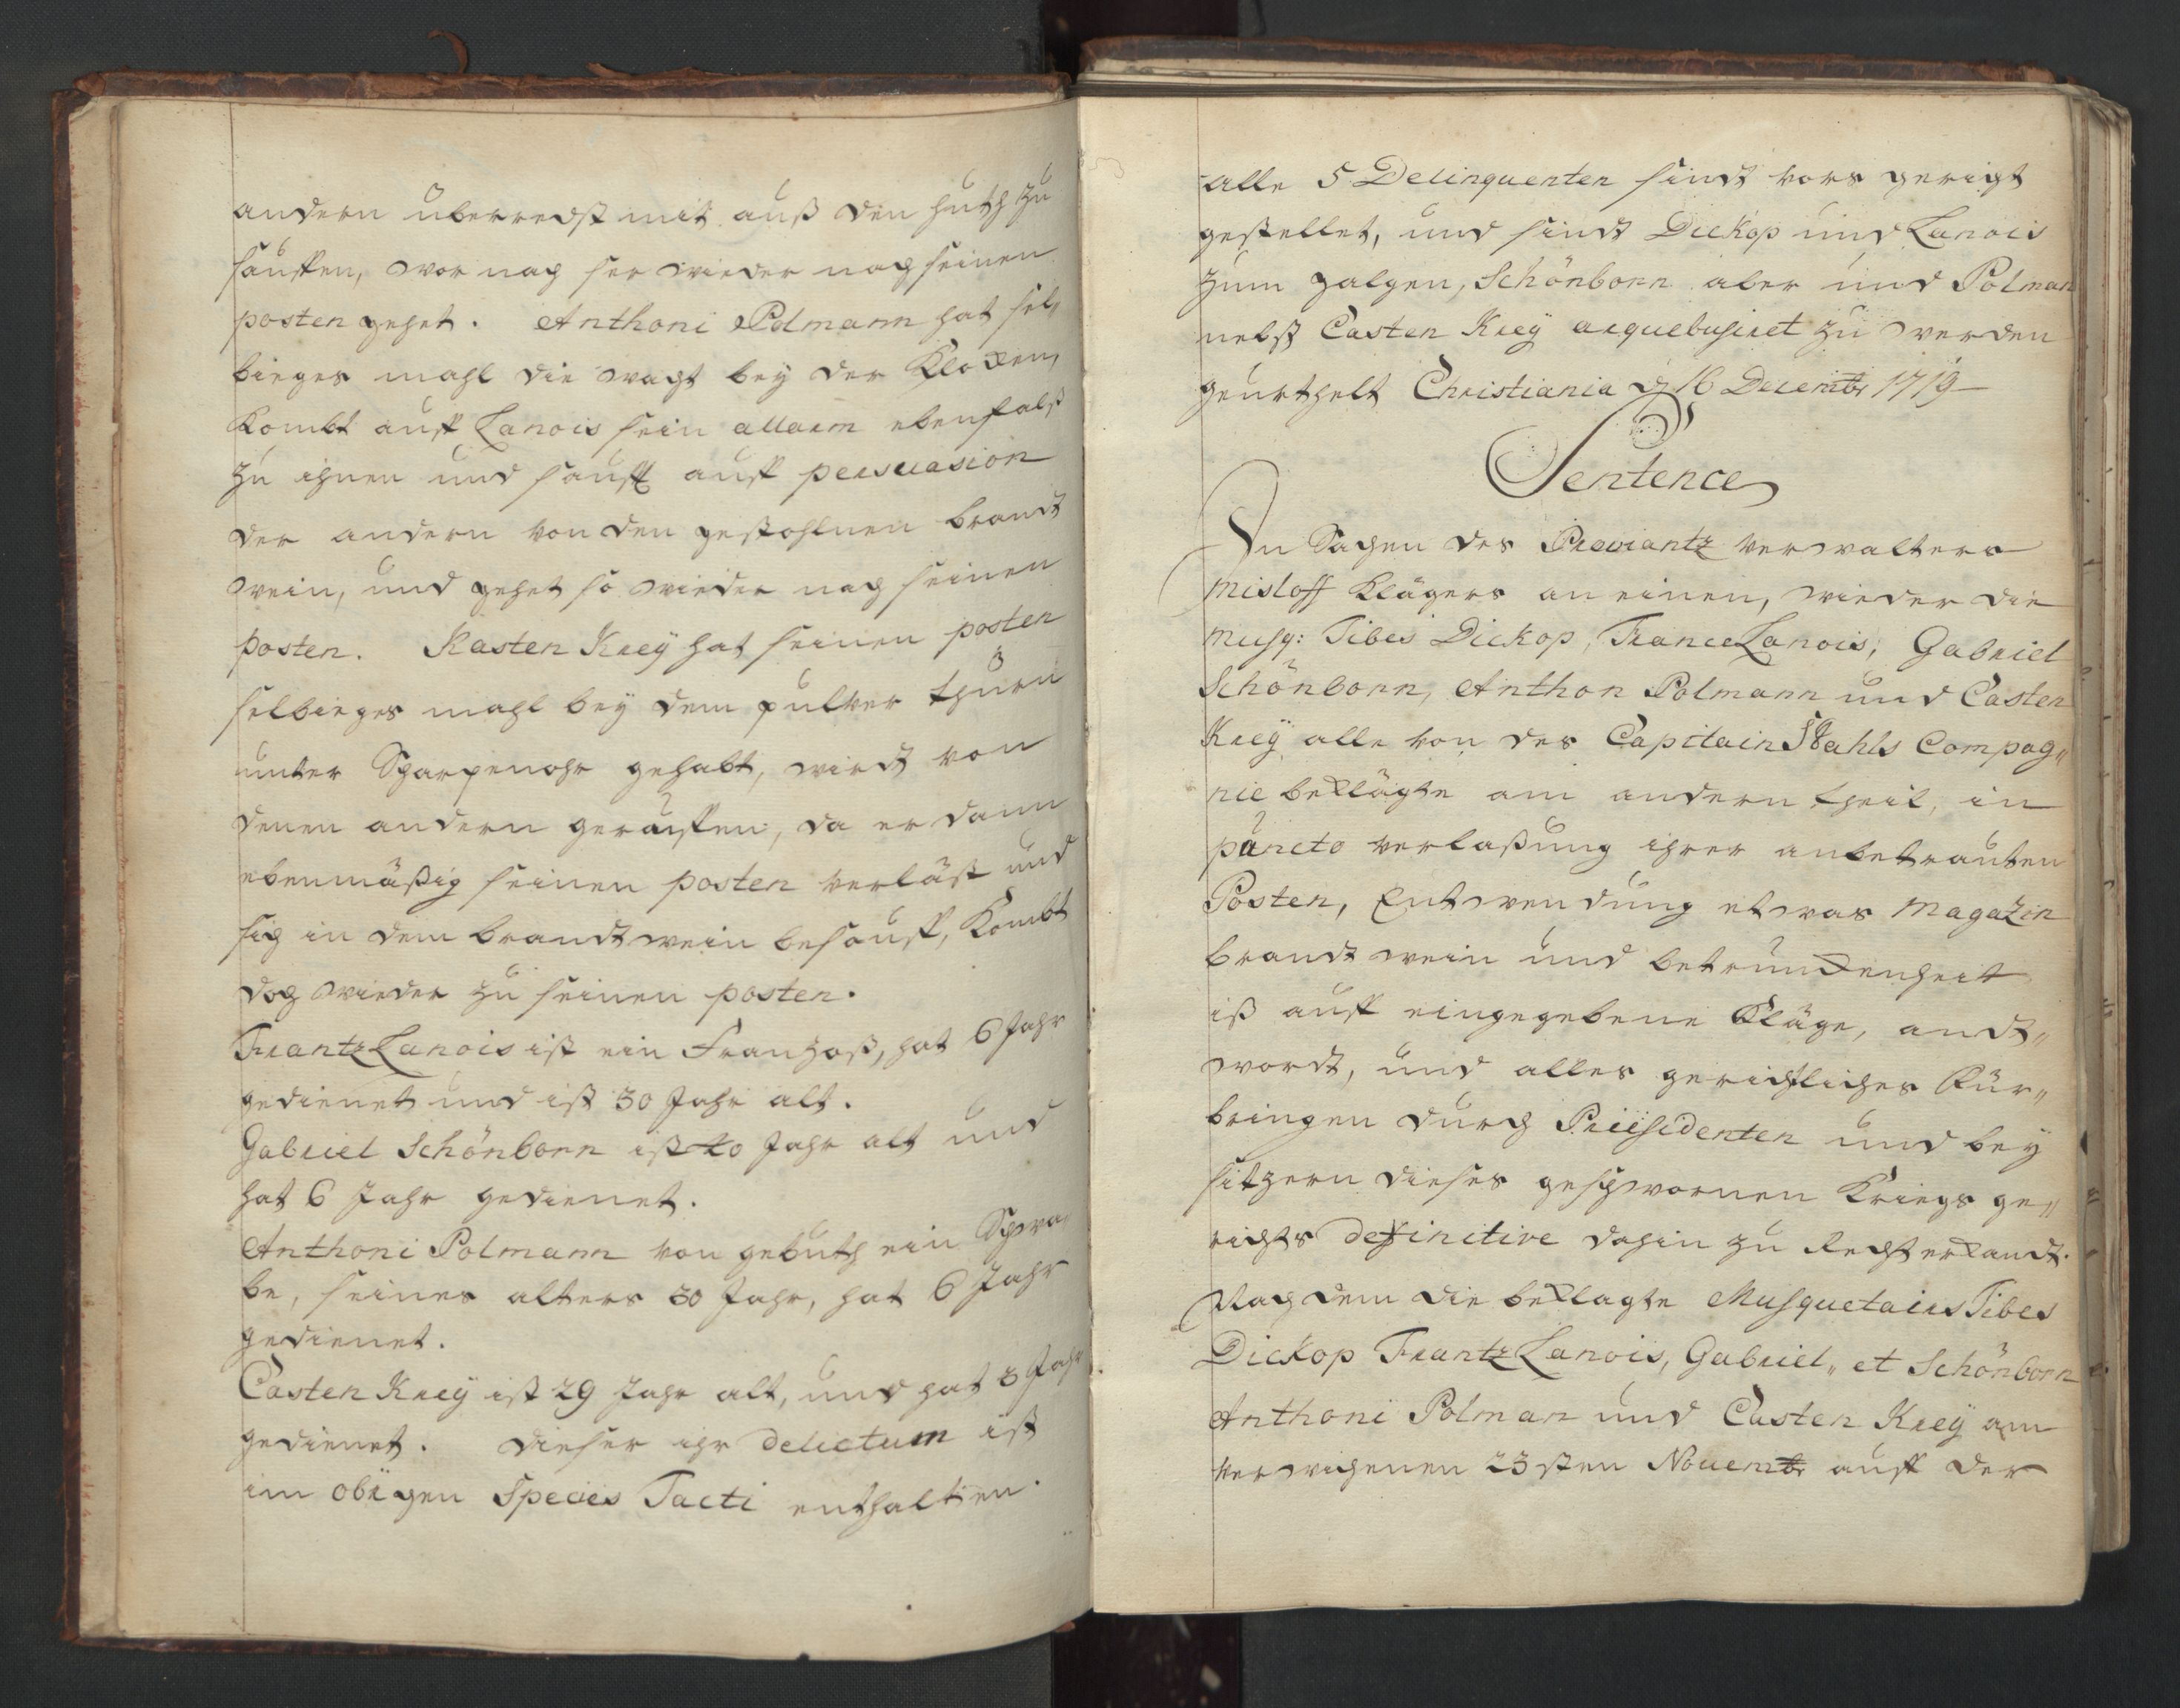 andern überredst mit auß den huth zu
sauffen, wor nach her wieder nach seinen
posten gehet. Anthoni Polmann hat sel„
bieges mahl die wacht bey der Klocken,
Kombt auff Lanois sein allarm ebenfalß
zu ihnen und saufft auff persuasion
der andern von den gestohlnen brandt
wein, und gehet so wieder nach seinen
posten. Kasten Kreÿ hat seinen posten
selbieges mahl beÿ dem pulver thurn
unter Scharpenohr gehabt, wirdt von
denen andern geruffen, da er dann
ebenmäßig seinen posten verläst und
sich in dem brandtwein besauff, Kombt
doch wieder zu seinen posten.
Frantz Lanois ist ein Franzoß, hat 6 Jahr
gedienet und ist 30 Jahr alt.
Gabriel Schönborn ist 40 Jahr alt und
hat 6 Jahr gedienet.
Anthoni Polmann von gebuth ein Schwa
be, seines alters 30 Jahr, hat 6 Jahr
gedienet.
Casten Kreÿ ist 29 Jahr alt, und hat 3 Jahr
gedienet. dieser ihr delictum ist
im obigen Species Facti enthalten.
alle 5 Delinquenten sindt vors gericht
gestellet, und sindt Dickop und Lanois
zum galgen, Schönborn aber und Polman
nebst Casten Kreÿ arquebusiret zu werden
geurthelt Christiania d. 16 Decembr 1719
Sentence
In Sachen des Proviantz verwalters
Misloff Klägers an einen, wieder die
Musq: Tibes Dickop, France Lanois, Gabriel
Schönborn, Anthon Polmann und Casten
Kreÿ alle von des Capitain Stahls Compag„
nie beklagte am andern theil, in
puncto verlaßung ihrer anbetrauten
Posten, Entwendung etwas Magazin
brandtwein und betrunckenheit
iß auff eingegebene Klage, andt„
wordt, und alles gerichtliches Für„
bringen durch Præsidenten und beÿ
sitzern dieses geschwornen Kriegs ge„
richts definitive dahin zu Recht erkandt.
Nach dem die beklagte Musquetairs Tibes
Dickop Frantz Lanois, Gabriel„ et Schönborn
Anthoni Polman und Casten Kreÿ am
verwichenen 23sten Novembr auff der